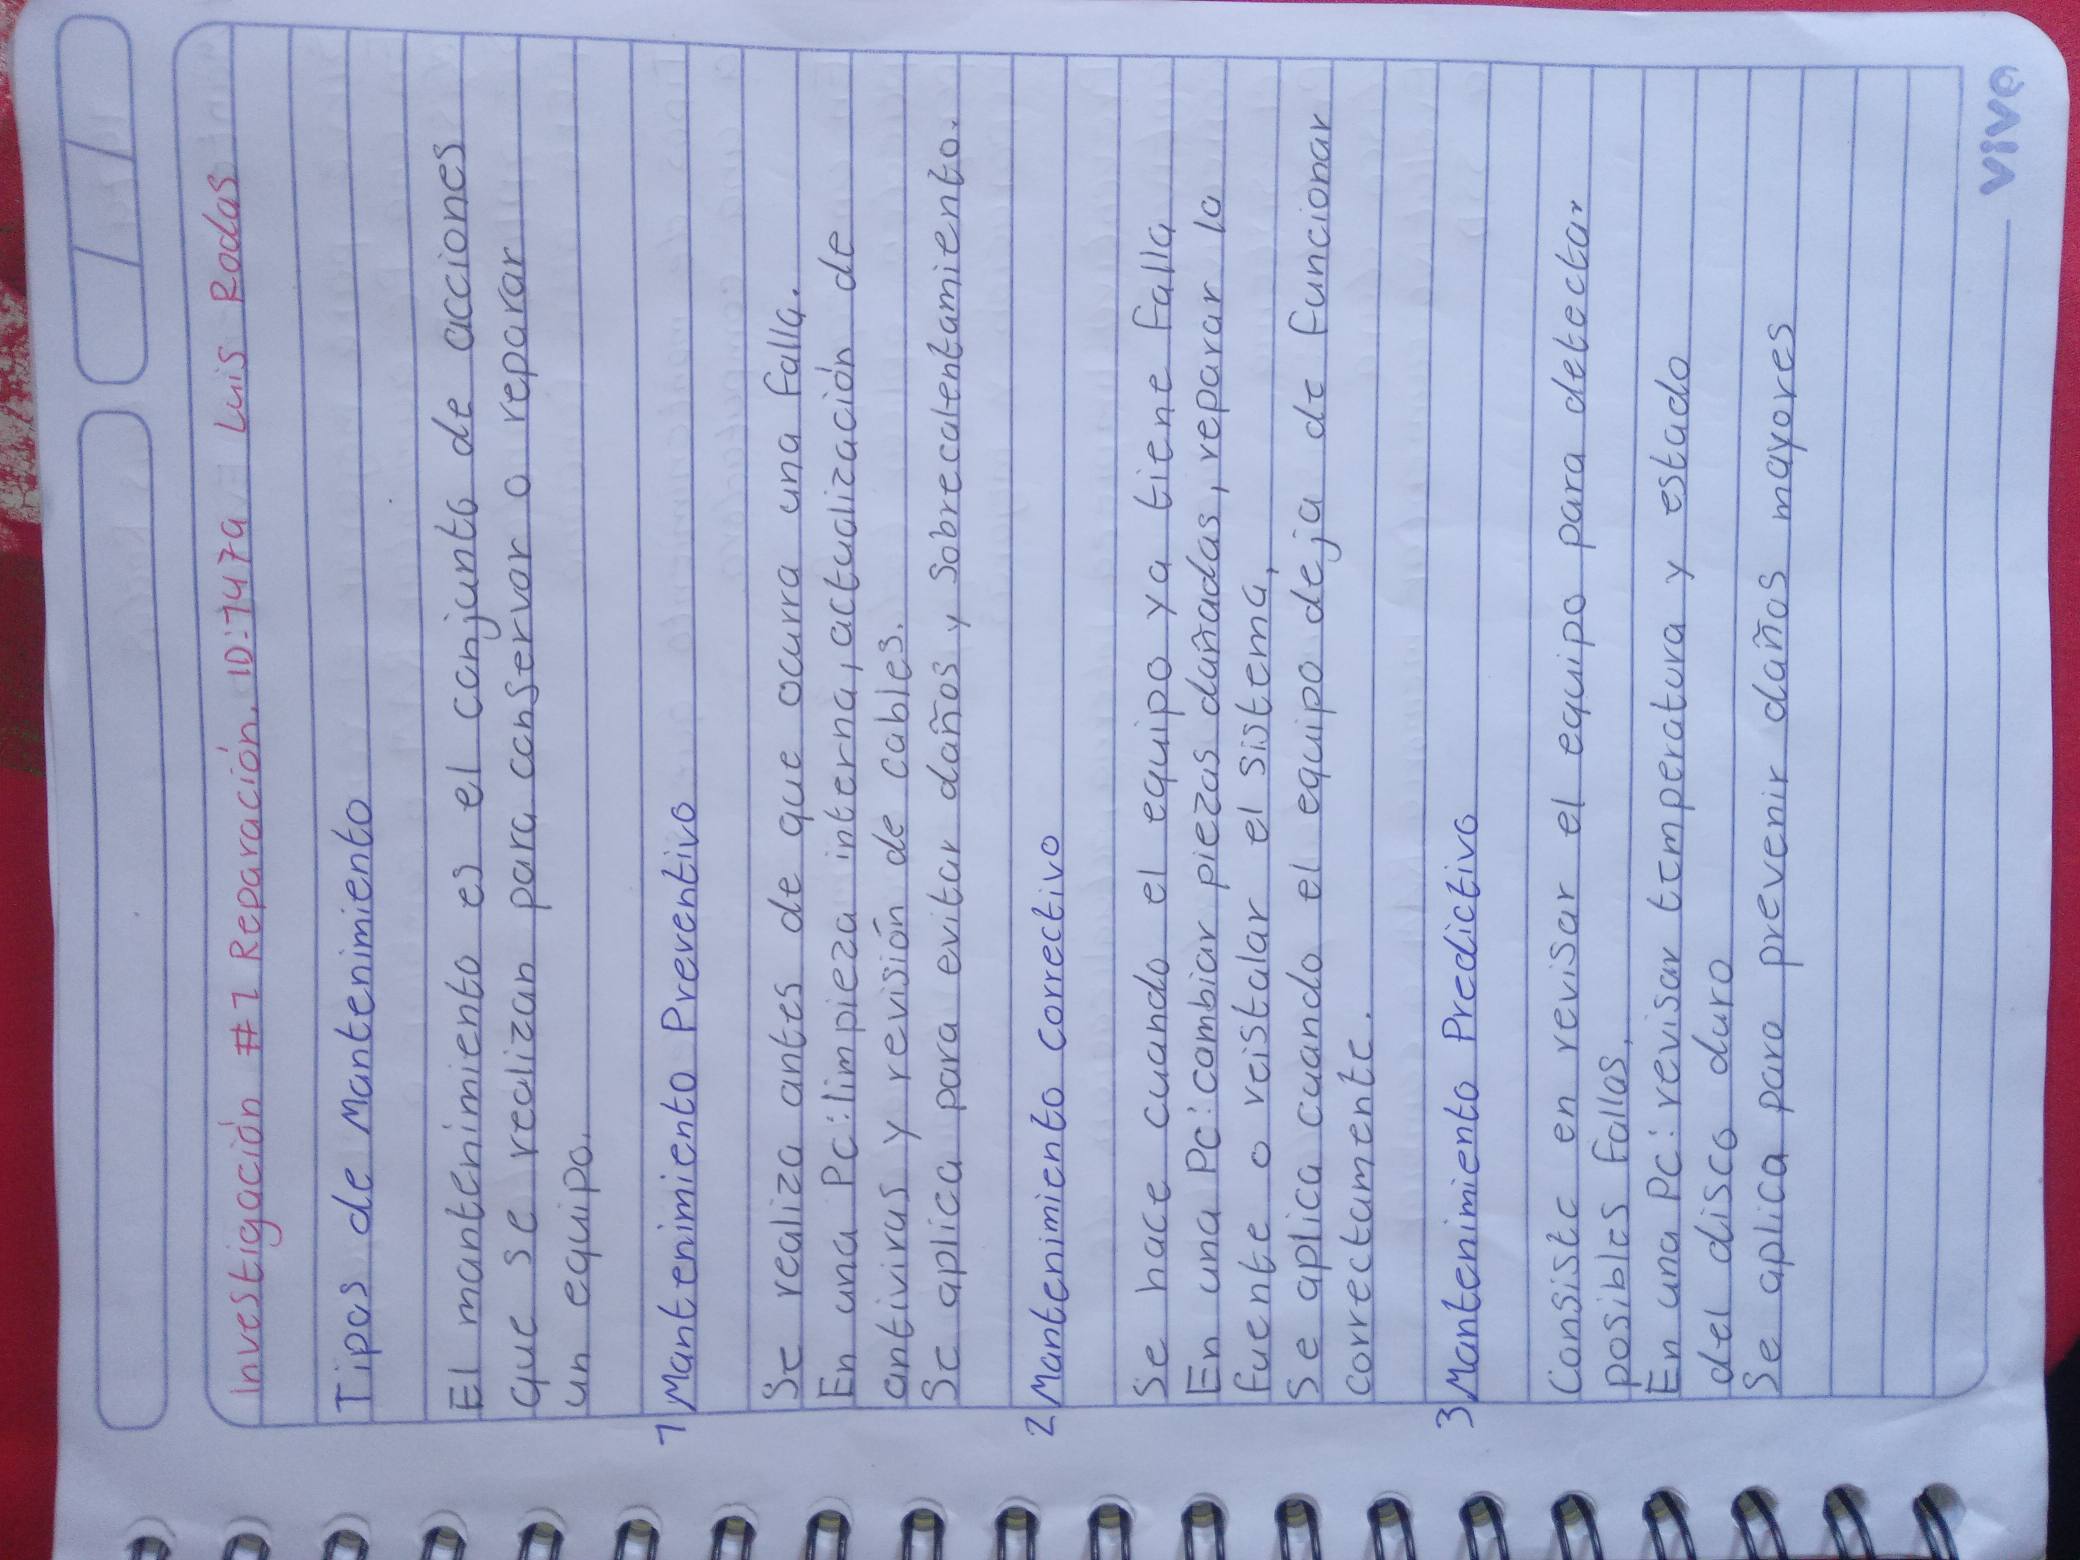 Investigación #1 Reparación. ID:7474 Luis Rodas
Tipos de Mantenimiento
El mantenimiento es el conjunto de acciones
que se realizan para conservar o reparar
un equipo.
1 Mantenimiento Preventivo
Se realiza antes de que ocurra una falla.
En una Pc: limpieza interna, actualización de
antivirus y revisión de cables.
Se aplica para evitar daños y sobrecalentamiento.
2 Mantenimiento correctivo
Se hace cuando el equipo ya tiene falla
En una Pc: cambiar piezas dañadas, reparar la
fuente o reistalar el sistema,
Se aplica cuando el equipo deja de funcionar
correctamente.
3 Mantenimiento Predictivo
Consiste en revisar el equipo para detectar
posibles fallas.
En una Pc: revisar temperatura y estado
del disco duro
Se aplica para prevenir daños mayores
vive